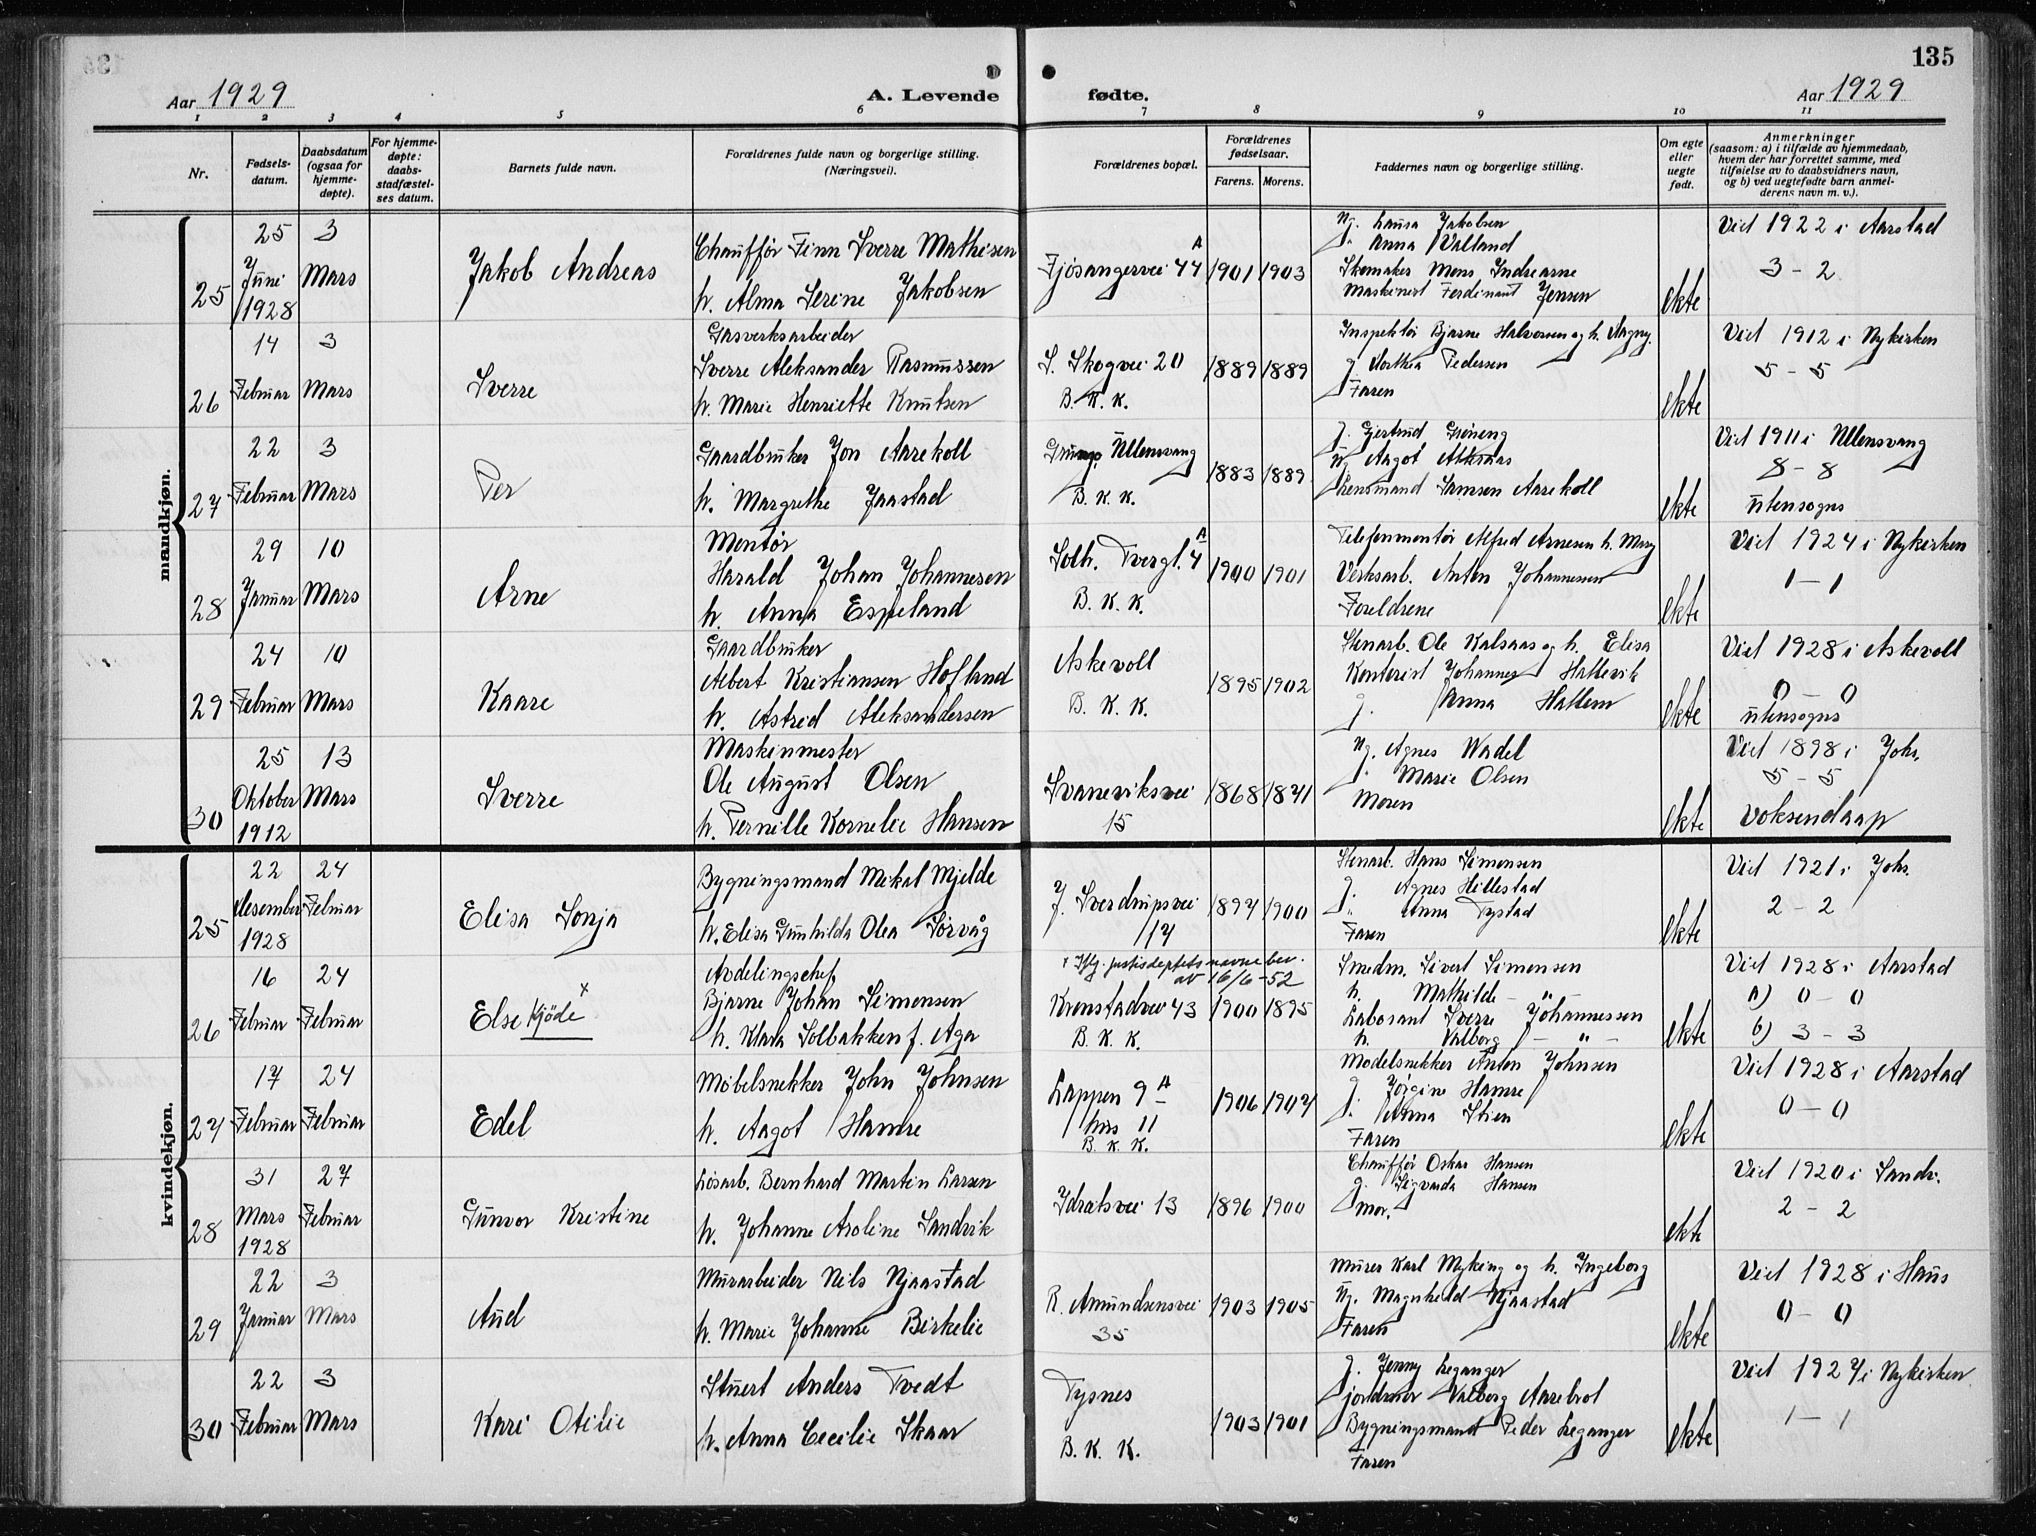 135
Aar 1929
A. Levende fødte.
Aar 1929
1 2 3 4 5 6 7 8 9 10 11
Nr.
Fødsels-
datum.
Daabsdatum
(ogsaa for
hjemme-
døpte).
For hjemme-
døpte:
daabs-
stadfæstel-
ses datum.
Barnets fulde navn.
Forældrenes fulde navn og borgerlige stilling.
(Næringsvei).
Forældrenes bopæl.
Forældrenes
fødselsaar.
Farens. Morens.
Faddernes navn og borgerlige stilling.
Om egte
eller
uegte
født.
Anmerkninger
(saasom: a) i tilfælde av hjemmedaab,
hvem der har forrettet samme, med
tilføielse av to daabsvidners navn,
og b) ved uegtefødte barn anmel-
derens navn m. v.).
mandkjøn.
25
25 Juni 1928
3 Mars
Jakob Andreas
Chauffør Finn Sverre Mathisen
h. Alma Serine Jakobsen
Fjøsangervei 44 A
1901 1903
Ug. Laura Jakobsen
" Anna Valland
Skomaker Mons Indrearne
Maskinist Ferdinant Jensen
ekte
Viet 1922 i Aarstad
3 - 2
26
14 Februar
3 Mars
Sverre
Gasverksarbeider
Sverre Aleksander Rasmussen
h. Marie Henriette Knutsen
S. Skogvei 20
B. K. K.
1889 1889
Inspektør Bjarne Halvorsen og h. Aagny.
g. Dorthea Pedersen
Faren
ekte
Viet 1912 i Nykirken
5 - 5
27
22 Februar
3 Mars
Per
Gaardbruker Jon Aarekoll
h. Margrethe Jaastad
Ullensvang
B. K. K.
1883 1889
g. Gjertrud Grøneng
Ug. Aagot
Lensmand Samson Aarekoll
ekte
Viet 1911 i Ullensvang
8 - 8
utensogns
28
29 Januar
10 Mars
Arne
Montør
Harald Johan Johannesen
h. Anna Espeland
Solh. Tvergt. 4 A
B. K. K.
1900 1901
Telefonmontør Alfred Arnesen h. Mary
Verksarb. Anton Johannesen
Foreldrene
ekte
Viet 1924 i Nykirken
1 - 1
29
24 Februar
10 Mars
Kaare
Gaardbruker
Albert Kristiansen Hofland
h. Astrid Aleksandersen
Askevoll
B. K. K.
1895 1902
Stenarb. Ole Kalsaas og h. Elisa
Kontorist Johannes Hallevik
g. Anna Hallem
ekte
Viet 1928 i Askevoll
0 - 0
utensogns
30
25 Oktober 1912
13 Mars
Sverre
Maskinmester
Ole August Olsen
h. Pernille Kornelie Hansen
Svaneviksvei
15
1868 1871
Ug. Agnes Wadel
g. Marie Olsen
Moren
ekte
Viet 1898 i Johs.
5 - 5
Voksendaap
kvindekjøn.
25
22 desember 1928
24 Februar
Elisa Sonja
Bygningsmand Mikal Mjelde
h. Elisa Gunhilda Olea Sørvåg
J. Sverdrupsvei
117
1897 1900
Stenarb. Hans Simonsen
g. Agnes Hillestad
" Anna Tystad
Faren
ekte
Viet 1921 i Johs.
2 - 2
26
16 Februar
24 Februar
Else Kjöde x
Avdelingschef
Bjarne Johan Simonsen
h. Klara Solbakken f. Aga
x Iflg. justisdeptets navnebev.
av 16/6-52
Kronstadvei 43
B. K. K.
1900 1895
Smedm. Sivert Simonsen
h. Mathilde - " -
Laborant Sverre Johannessen
h. Valborg - " -
ekte
Viet 1928 i Aarstad
a) 0 - 0
b) 3 - 3
27
17 Februar
24 Februar
Edel
Møbelsnekker John Johnsen
h. Aagot Hamre
Lappen 9 A
hus 11
B. K. K.
1906 1907
Modelsnekker Anton Johnsen
g. Jørgine Hamre
" Anna Stien
Faren
ekte
Viet 1928 i Aarstad
0 - 0
28
31 Mars 1928
27 Februar
Gunvor Kristine
Løsarb. Bernhard Martin Larsen
h. Johanne Aroline Sandvik
Idratsvei 13
1896 1900
Chauffør Oskar Hansen
g. Sigvarda Hansen
mor.
ekte
Viet 1920 i Sandv.
2 - 2
29
22 Januar
3 Mars
Aud
Murarbeider Nils Njaastad
h. Marie Johanne Birkelie
R. Amundsensvei
35
1903 1905
Murer Karl Myking og h. Ingeborg
Ug. Magnhild Njaastad
Faren
ekte
Viet 1928 i Haus
0 - 0
30
22 Februar
3 Mars
Kari Otilie
Stuert Anders Tvedt
h. Anna Cecilie Skaar
Tysnes
B. K. K.
1903 1901
g. Jenny Leganger
jordmor Valborg Aarebrot
Bygningsmand Peder Leganger
Faren
ekte
Viet 1927 i Nykirken
1 - 1